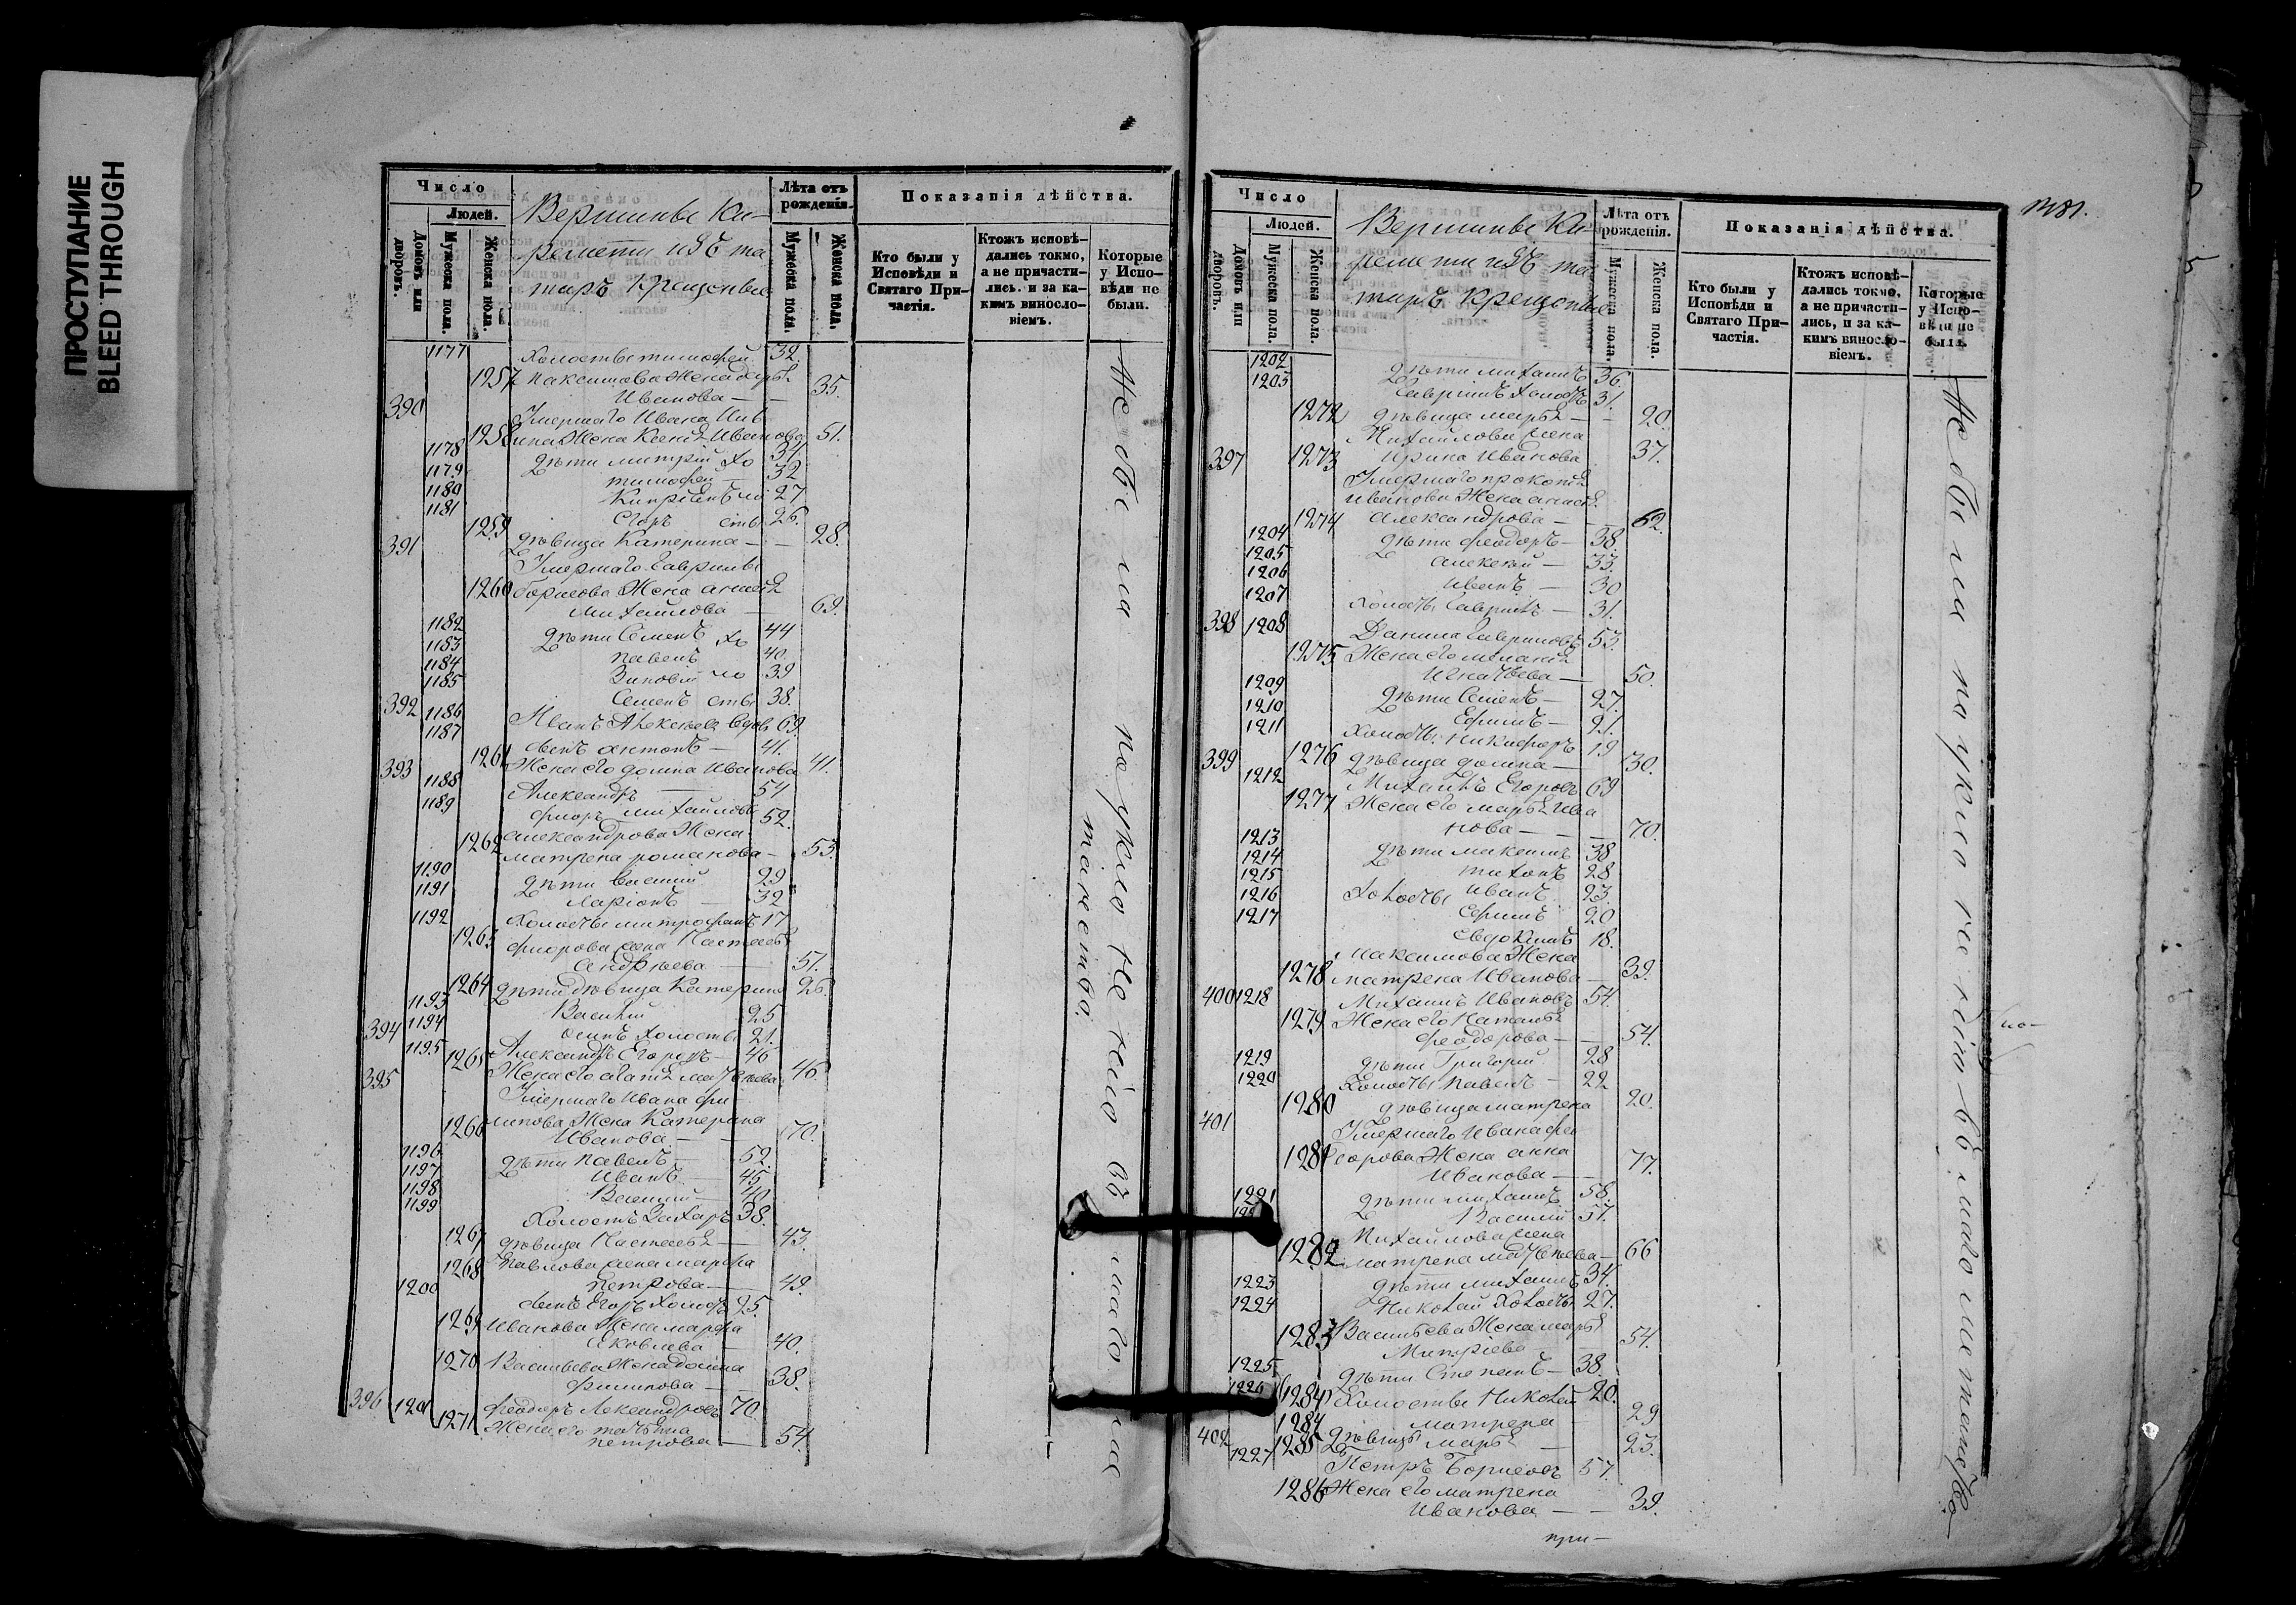 ПРОСТУПАНИЕ
BLEED THROUGH
Число
Людей.
Домовъ или дворовъ.
Мужеска пола.
Женска пола.
Вершины Ки-
ремети изъ та
таръ крещоные
Лѣта отъ рожденія.
Мужеска пола.
Женска пола.
Показанія дѣйства.
Кто были у Исповѣди и Святаго Причастія.
Ктожъ исповѣдались токмо, а не причастились. и за какимъ винословіемъ.
Которые у Исповѣди не были.
1177 Холостые тимофей 32.
1257 максимова Жена дарья
Иванова — 35.
390 Умершаго Ивана
1258 Жена Ксенья Иванова 51.
1178 дѣти митрій хо 34.
1179 тимофей 32
1180 Кипріянъ ло 27
1181 Егоръ сты 26.
1259 дѣвица Катерина — 28.
391 Умершаго Гаврилы
1260 борисова Жена
михайлова — 69.
1182 дѣти Семенъ хо 44
1183 павелъ 40.
1184 Зиновей ло 39
1185 Семенъ сты 38.
392 1186 Иванъ Алексѣевъ вдовъ 69.
1187 сынъ антонъ — 41.
1261 Жена его домна Иванова 41.
393 1188 Александръ — 54
1189 флоръ михайловы 52.
1262 александрова Жена
матрена романова — 53.
1190 дѣти василий 29
1191 ларіонъ — 32
1192 Холостъ митрофанъ 17
1263 флорова жена Настасья
андрѣева — 51.
1264 дѣти дѣвица Катерина 26.
1193 Василий 25
1194 осипъ холосты 21.
394 1195 Александръ Егоровъ — 46
1265 Жена его агапья матвѣева 46.
395 Умершаго Ивана фи
1266 липова Жена Катерина
Иванова — 70.
1196 дѣти павелъ — 52.
1197 Иванъ — 45
1198 Василий — 40
1199 Холостъ Захаръ 38.
1267 дѣвица Настасья — 43.
1268 павлова жена марфа
петрова — 49.
1200 сынъ Егоръ холостъ 25.
1269 иванова Жена марфа
Яковлева — 40.
1270 Васильева Жена домна
филипова — 38.
396 1201 феодоръ Александровъ 70.
1271 Жена его татьяна
петрова — 54.
Не были по ужило не нію въ мало ля
тагентво.
Число
Людей.
Домовъ или дворовъ.
Мужеска пола.
Женска пола.
Вершины Ки-
ремети изъ та
таръ крещоные
Лѣта отъ рожденія.
Мужеска пола.
Женска пола.
Показанія дѣйства.
Кто были у Исповѣди и Святаго Причастія.
Ктожъ исповѣдались токмо, а не причастились, и за какимъ винословіемъ.
Которые у Исповѣди не были.
1202 дѣти михаилъ 36.
1203 Гаврилъ холостъ 31.
1272 дѣвица марья — 20.
Михайлова жена
397 1273 Ирина Иванова 37.
Умершаго прокопья
иванова Жена
1274 александрова — 62.
1204 дѣти феодоръ — 38.
1205 алексей — 33.
1206 иванъ — 30
1207 холосты Гаврилъ — 31.
398 1208 Данила Гавриловъ 53.
1275 Жена его меланья
Игнатьева — 50.
1209 дѣти Семенъ — 27.
1210 Ефимъ — 21.
1211 холосты никифоръ 19
1276 дѣвица домна — 30.
399 1212 Михаилъ Егоровъ 69
1277 Жена его марья Ива
нова — 70.
1213 дѣти максимъ 38
1214 тихонъ 28
1215 холосты иванъ 23.
1216 Ефимъ 20
1217 Евдокимъ 18.
максимова Жена
1278 матрена Иванова — 39.
400 1218 Михаилъ Ивановъ 54.
1279 Жена его Наталья
феодорова — 54.
1219 дѣти Григорий 28
1220 холосты павелъ — 22
1280 дѣвица матрена 20.
401 Умершаго Ивана фе
1281 дорова Жена анна
Иванова — 77.
1221 дѣти михаилъ 58.
Василий 57.
Михайлова жена
1282 матрена матвѣева — 66
1223 дѣти михаилъ 34.
1224 николай холосты 27.
1283 Васильева Жена марья
Митріева 54.
1225 дѣти Степанъ — 38.
1226 Холосты Николай 20.
1284 матрена 29
1285 дѣвицы марья — 23.
402 1227 Петръ Борисовъ 57.
1286 Жена его матрена
Иванова — 39.
при—